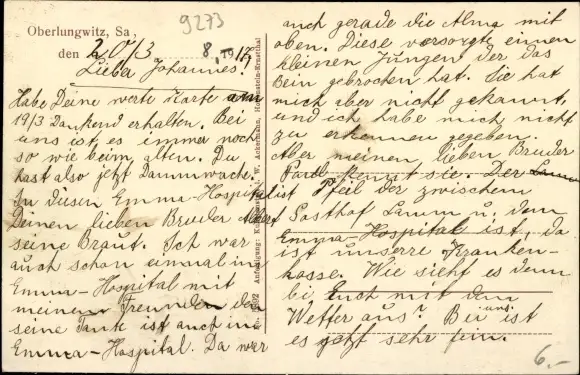 9273
Oberlungwitz, Sa,
den 20/3 1917
Lieber Johannes!
Habe Deine werte Karte am
19/3 Dankend erhalten. Bei
uns ist es immer noch
so wie beim alten. Du
hast also jetzt
In diesen Emma-Hospital ist
Deinen lieben Bruder Albert
seine Braut. Ich war
auch schon einmal im
Emma-Hospital mit
meinem Freunden den
seine Tante ist auch im
Emma-Hospital. Da war
W. Ackermann, Hohenstein-Ernstthal
auch gerade die Alma mit
oben. Diese versorgte einen
kleinen Jungen der das
Bein gebrochen hat. Sie hat
mich aber nicht gekannt,
und ich habe mich nicht
zu erkennen gegeben.
Aber meinen lieben Bruder
Paul kennt sie. Der
Pfeil der zwischem
Gasthof Lamm u. dem
Emma-Hospital ist, da
ist unserre Kranken-
kasse. Wie sieht es denn
bei Euch mit dem
Wetter aus? Bei uns ist
es jetzt sehr fein.
6.-